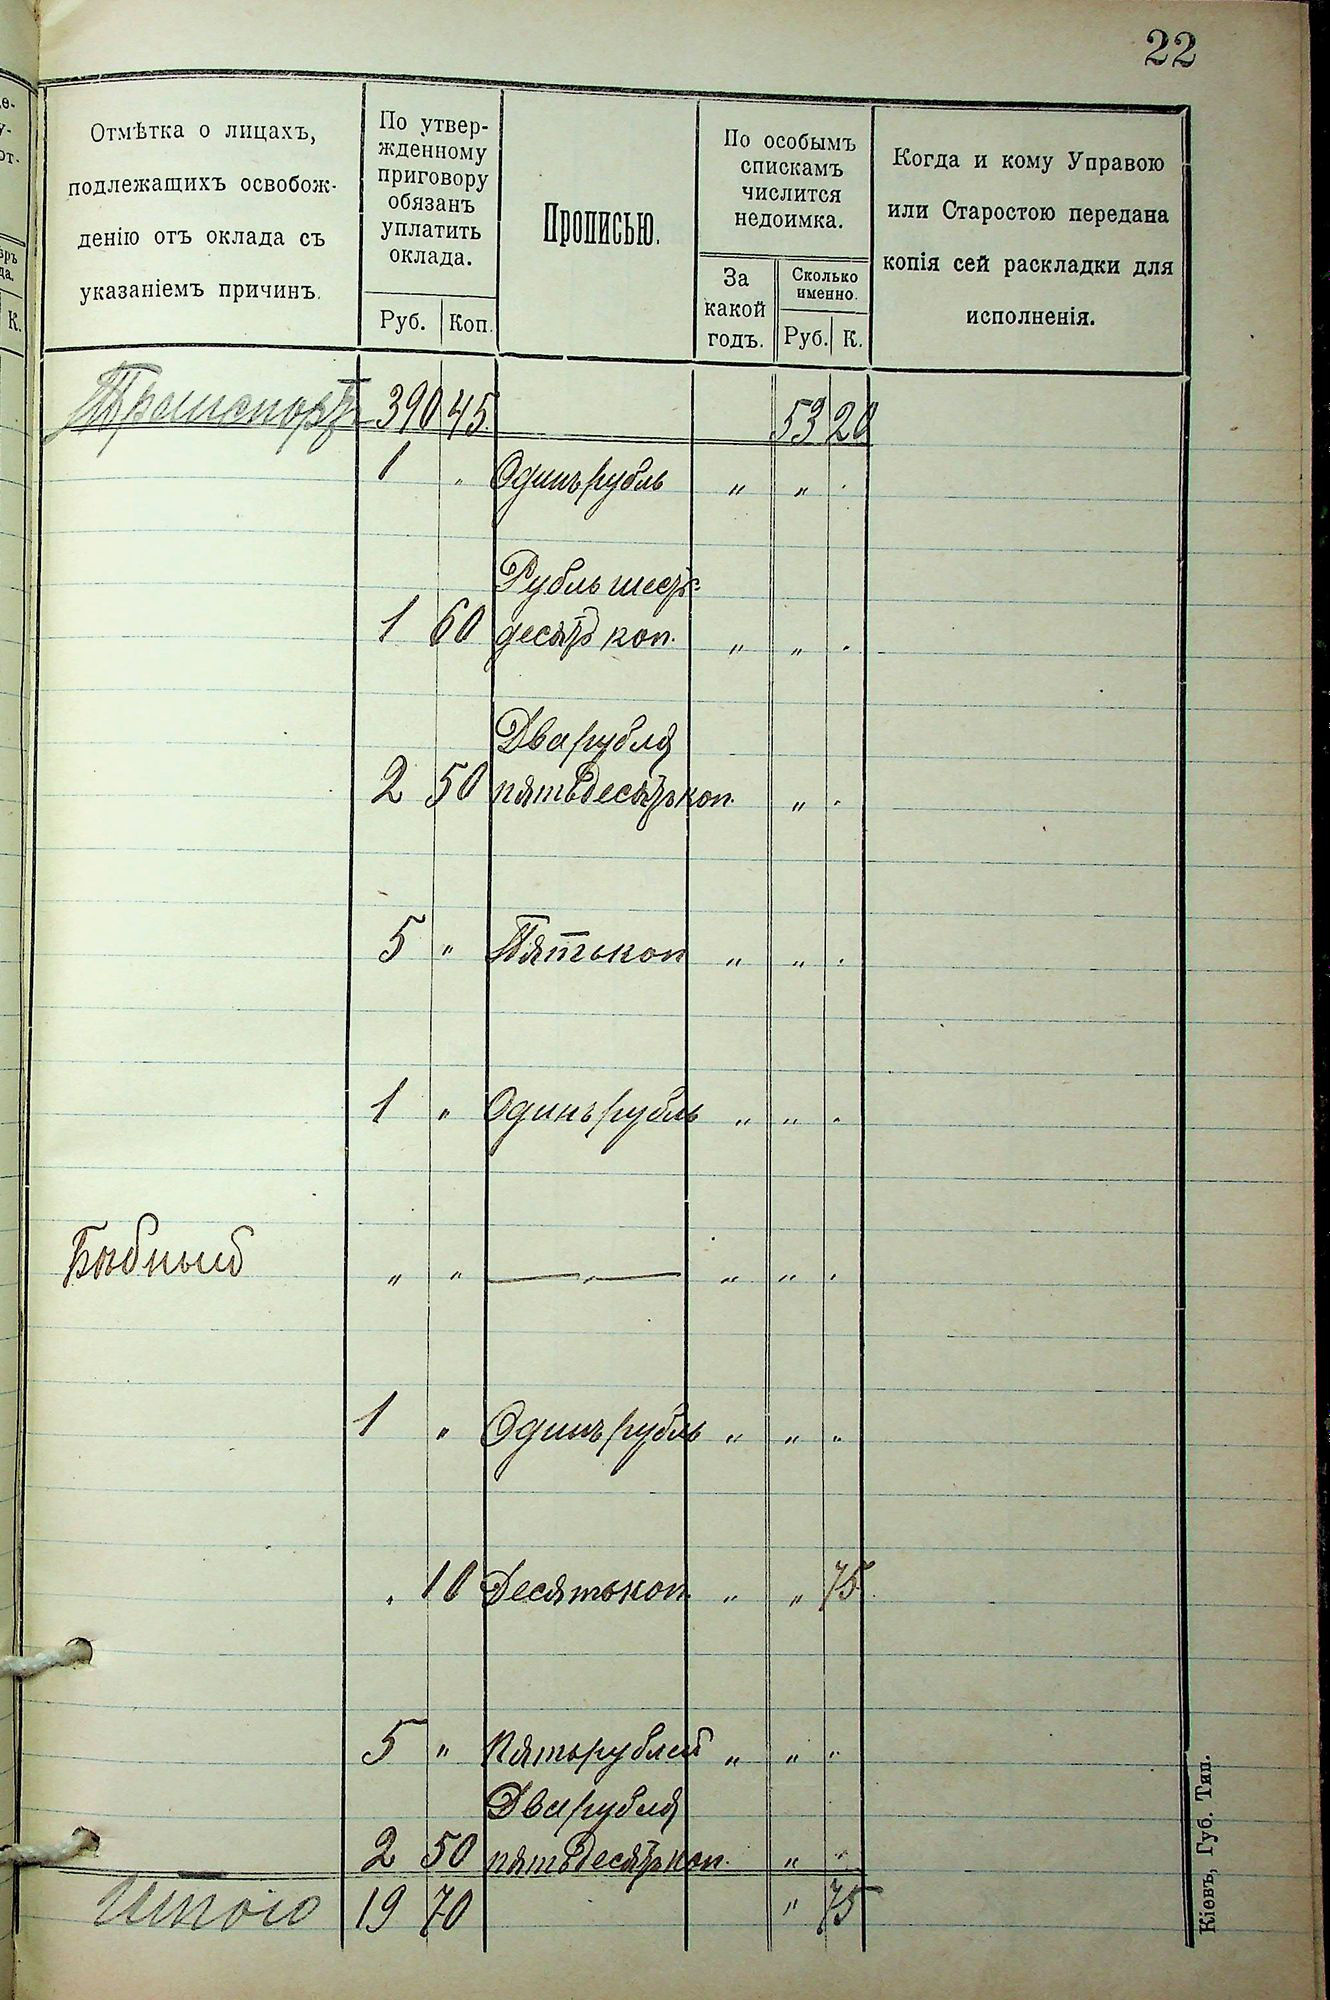 22
Отмѣтка о лицахъ,
подлежащихъ освобож-
денію отъ оклада съ
указаніемъ причинъ.
По утвер-
жденному
приговору
обязанъ
уплатить
оклада.
Руб. Коп.
Прописью.
По особымъ
спискамъ
числится
недоимка.
За
какой
годъ.
Сколько
именно.
Руб. К.
Когда и кому Управою
или Старостою передана
копія сей раскладки для
исполненія.
К.
Транспортъ 390 45 53 20
1 " Одинъ рубль " " "
Рубль шесть-
1 60 десятъ коп. " " "
Два рубля
2 50 пятьдесятъ коп. " "
5 " Пять коп " " "
1 " Одинъ рубль " " "
Бѣдный " " — " — " " "
1 " Одинъ рубль " " "
" 10 Десять коп. " " 75
5 " Пять рублей " " "
Два рубля
2 50 пятьдесятъ коп. " "
Итого 19 70 " 75
Кіевъ, Губ. Тип.